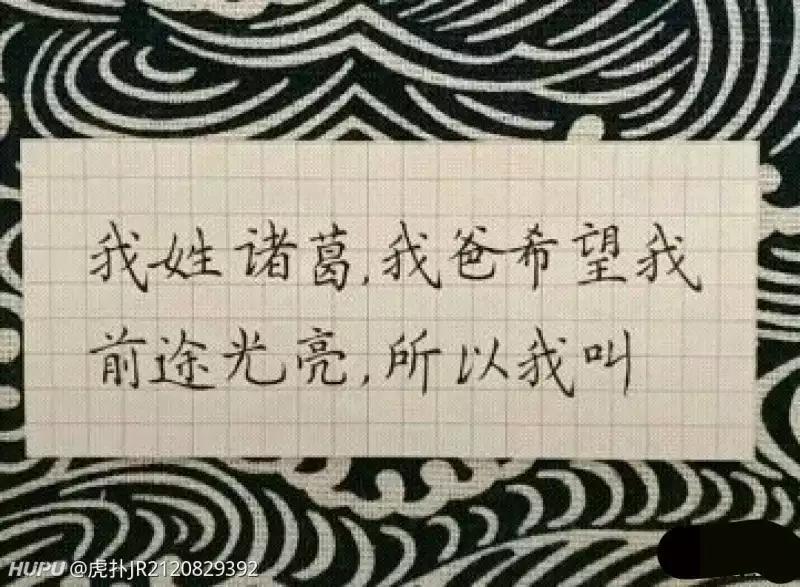 我姓诸葛,我爸希望我
前途光亮,所以我叫
HUPU @虎扑JR2120829392